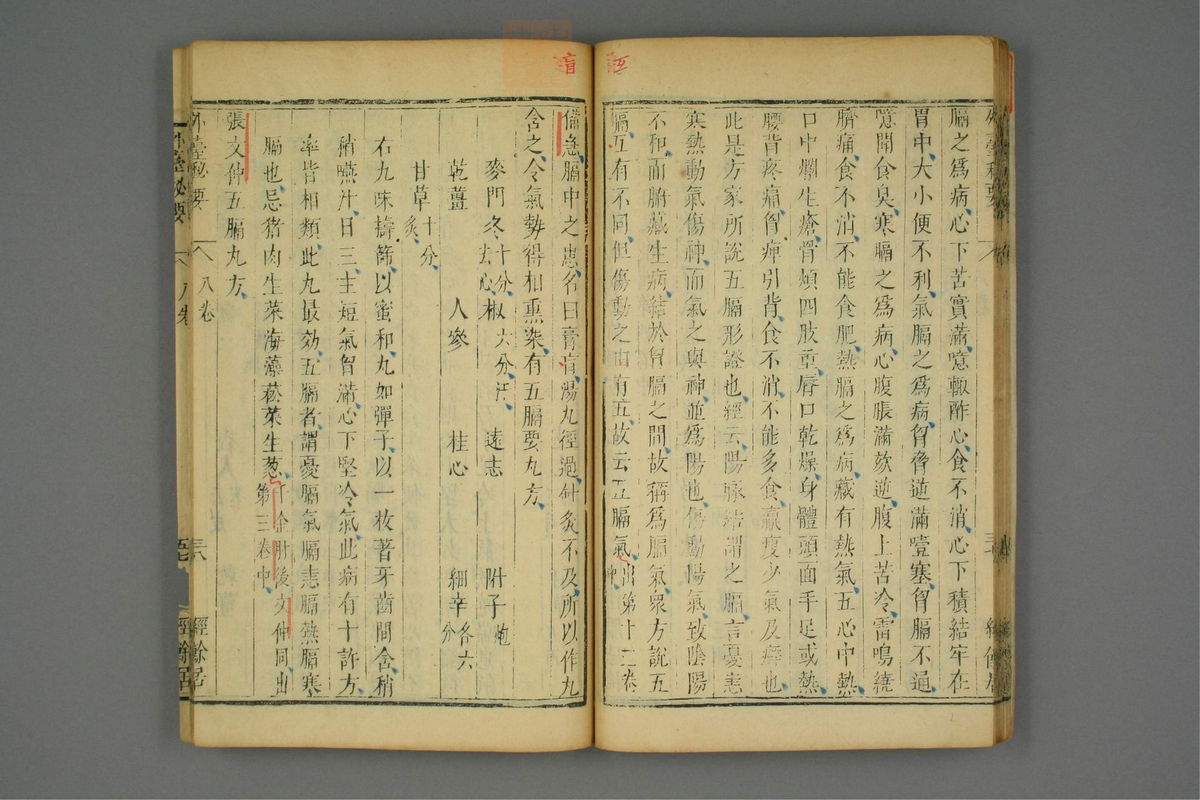 膈之爲病心下苦實滿噫輙酢心食不消心下積結牢在
胃中大小便不利氣膈之爲病胷脅逆滿噎塞胷膈不通
噫聞食臭寒膈之爲病心腹脹滿欬逆腹上苦冷雷鳴繞
臍痛食不消不能食肥熱膈之爲病藏有熱氣五心中熱
口中爛生瘡骨煩四肢重唇口乾燥身體頭面手足或熱
腰背疼痛胷痺引背食不消不能多食羸瘦少氣及癖也
此是方家所說五膈形證也經云陽脉結謂之膈言憂恚
寒熱動氣傷神而氣之與神並爲陽也傷動陽氣致陰陽
不和而腑藏生病結於胷膈之間故稱爲膈氣衆方說五
膈互有不同但傷動之由有五故云五膈氣出第十三卷中
備急膈中之患名曰膏肓湯丸徑過針灸不及所以作丸
含之令氣勢得相熏染有五膈要丸方
麥門冬十分去心 椒六分汗 遠志 附子炮
乾薑 人參 桂心 細辛各六分
甘草十分炙
右九味擣篩以蜜和丸如彈子以一枚著牙齒間含稍
稍嚥汁日三主短氣胷滿心下堅冷氣此病有十許方
率皆相類此丸最効五膈者謂憂膈氣膈恚膈熱膈寒
膈也忌猪肉生菜海藻菘菜生葱千金肘後文仲同出第三卷中
張文仲五膈丸方
外臺秘要 八卷 三八 經餘居